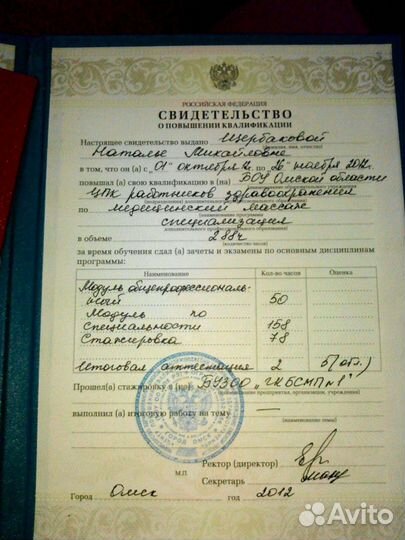 РОССИЙСКАЯ ФЕДЕРАЦИЯ
СВИДЕТЕЛЬСТВО
О ПОВЫШЕНИИ КВАЛИФИКАЦИИ
Настоящее свидетельство выдано Щербаковой
(фамилия, имя, отчество)
Наталье Михайловне
в том, что он (а) с "01" октября 12 по "26" ноября 2012.
повышал (а) свою квалификацию в (на) БОУ Омской области
ЦПК работников здравоохранения
по медицинский массаж
специализация
в объеме 288ч
(количество часов)
за время обучения сдал (а) зачеты и экзамены по основным дисциплинам
программы:
Наименование Кол-во часов Оценка
Модуль общепрофессиональ-
ный 50
Модуль по
специальности 158
Стажировка 78
Итоговая аттестация 2 5(отл.)
Прошел(а) стажировку в (на) БУЗОО "ГК БСМП №1"
(наименование предприятия, организации, учреждения)
выполнил (а) итоговую работу на тему —
(наименование темы)
ГОРОД ОМСК
Ректор (директор)
М.П. Секретарь
Город Омск год 2012
Avito